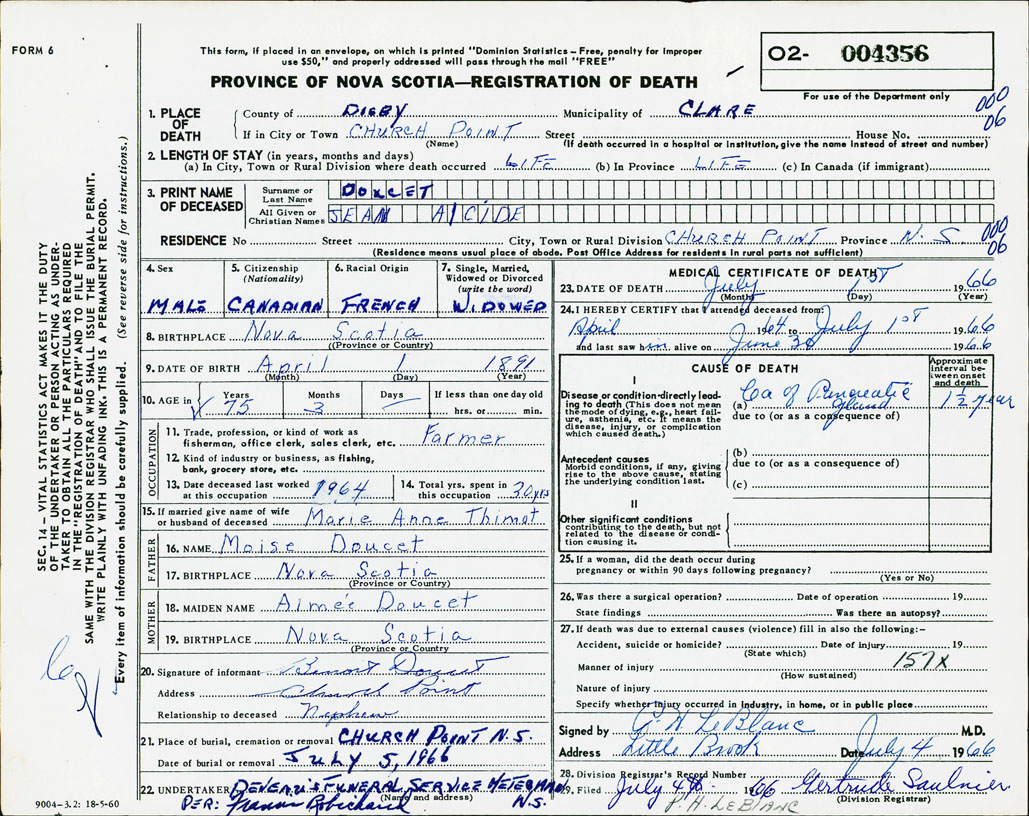 FORM 6
This form, if placed in an envelope, on which is printed "Dominion Statistics – Free, penalty for improper
use $50," and properly addressed will pass through the mail "FREE"
PROVINCE OF NOVA SCOTIA—REGISTRATION OF DEATH
O2- 004356
For use of the Department only
000
06
1. PLACE OF DEATH
County of DIGBY Municipality of CLARE
If in City or Town CHURCH POINT Street House No.
(Name) (If death occurred in a hospital or institution, give the name instead of street and number)
2. LENGTH OF STAY (in years, months and days)
(a) In City, Town or Rural Division where death occurred LIFE (b) In Province LIFE (c) In Canada (if immigrant)
3. PRINT NAME OF DECEASED
Surname or Last Name DOUCET
All Given or Christian Names JEAN ALCIDE
RESIDENCE No Street City, Town or Rural Division CHURCH POINT Province N.S 000
06
(Residence means usual place of abode. Post Office Address for residents in rural parts not sufficient)
4. Sex MALE
5. Citizenship (Nationality) CANADIAN
6. Racial Origin FRENCH
7. Single, Married, Widowed or Divorced (write the word) WIDOWED
8. BIRTHPLACE Nova Scotia
(Province or Country)
9. DATE OF BIRTH April 1 1891
(Month) (Day) (Year)
10. AGE in Years 75 Months 3 Days – If less than one day old hrs. or min.
OCCUPATION
11. Trade, profession, or kind of work as
fisherman, office clerk, sales clerk, etc. Farmer
12. Kind of industry or business, as fishing,
bank, grocery store, etc.
13. Date deceased last worked at this occupation 1964
14. Total yrs. spent in this occupation 30 yrs
15. If married give name of wife
or husband of deceased Marie Anne Thimot
FATHER
16. NAME Moise Doucet
17. BIRTHPLACE Nova Scotia
(Province or Country)
MOTHER
18. MAIDEN NAME Aimée Doucet
19. BIRTHPLACE Nova Scotia
(Province or Country
20. Signature of informant Benoit Doucet
Address Church Point
Relationship to deceased Nephew
21. Place of burial, cremation or removal CHURCH POINT N.S.
Date of burial or removal JULY 5, 1966
22. UNDERTAKER FUNERAL SERVICE METEGHAN
(Name and address) N.S.
PER: Robichaud
9004-3.2: 18-5-60
MEDICAL CERTIFICATE OF DEATH
23. DATE OF DEATH July 1st 1966
(Month) (Day) (Year)
24. I HEREBY CERTIFY that I attended deceased from:
April 1964 to July 1st 1966
and last saw him alive on June 30 1966
CAUSE OF DEATH
Approximate interval between onset and death
I
Disease or condition directly leading to death (This does not mean the mode of dying, e.g., heart failure, asthenia, etc. It means the disease, injury, or complication which caused death.)
(a) Ca of Pancreatic gland 1½ year
due to (or as a consequence of)
Antecedent causes
Morbid conditions, if any, giving rise to the above cause, stating the underlying condition last.
(b)
due to (or as a consequence of)
(c)
II
Other significant conditions
contributing to the death, but not related to the disease or condition causing it.
25. If a woman, did the death occur during
pregnancy or within 90 days following pregnancy?
(Yes or No)
26. Was there a surgical operation? Date of operation 19
State findings Was there an autopsy?
27. If death was due to external causes (violence) fill in also the following:–
Accident, suicide or homicide? Date of injury 19
(State which)
Manner of injury 157X
(How sustained)
Nature of injury
Specify whether injury occurred in industry, in home, or in public place
Signed by LeBlanc M.D.
Address Little Brook Date July 4 1966
28. Division Registrar's Record Number
29. Filed July 4th 1966 Gertrude Saulnier
(Division Registrar)
P.H. LEBLANC
SEC. 14 – VITAL STATISTICS ACT MAKES IT THE DUTY
OF THE UNDERTAKER OR PERSON ACTING AS UNDER-
TAKER TO OBTAIN ALL THE PARTICULARS REQUIRED
IN THE "REGISTRATION OF DEATH" AND TO FILE THE
SAME WITH THE DIVISION REGISTRAR WHO SHALL ISSUE THE BURIAL PERMIT.
WRITE PLAINLY WITH UNFADING INK. THIS IS A PERMANENT RECORD.
Every item of information should be carefully supplied. (See reverse side for instructions.)